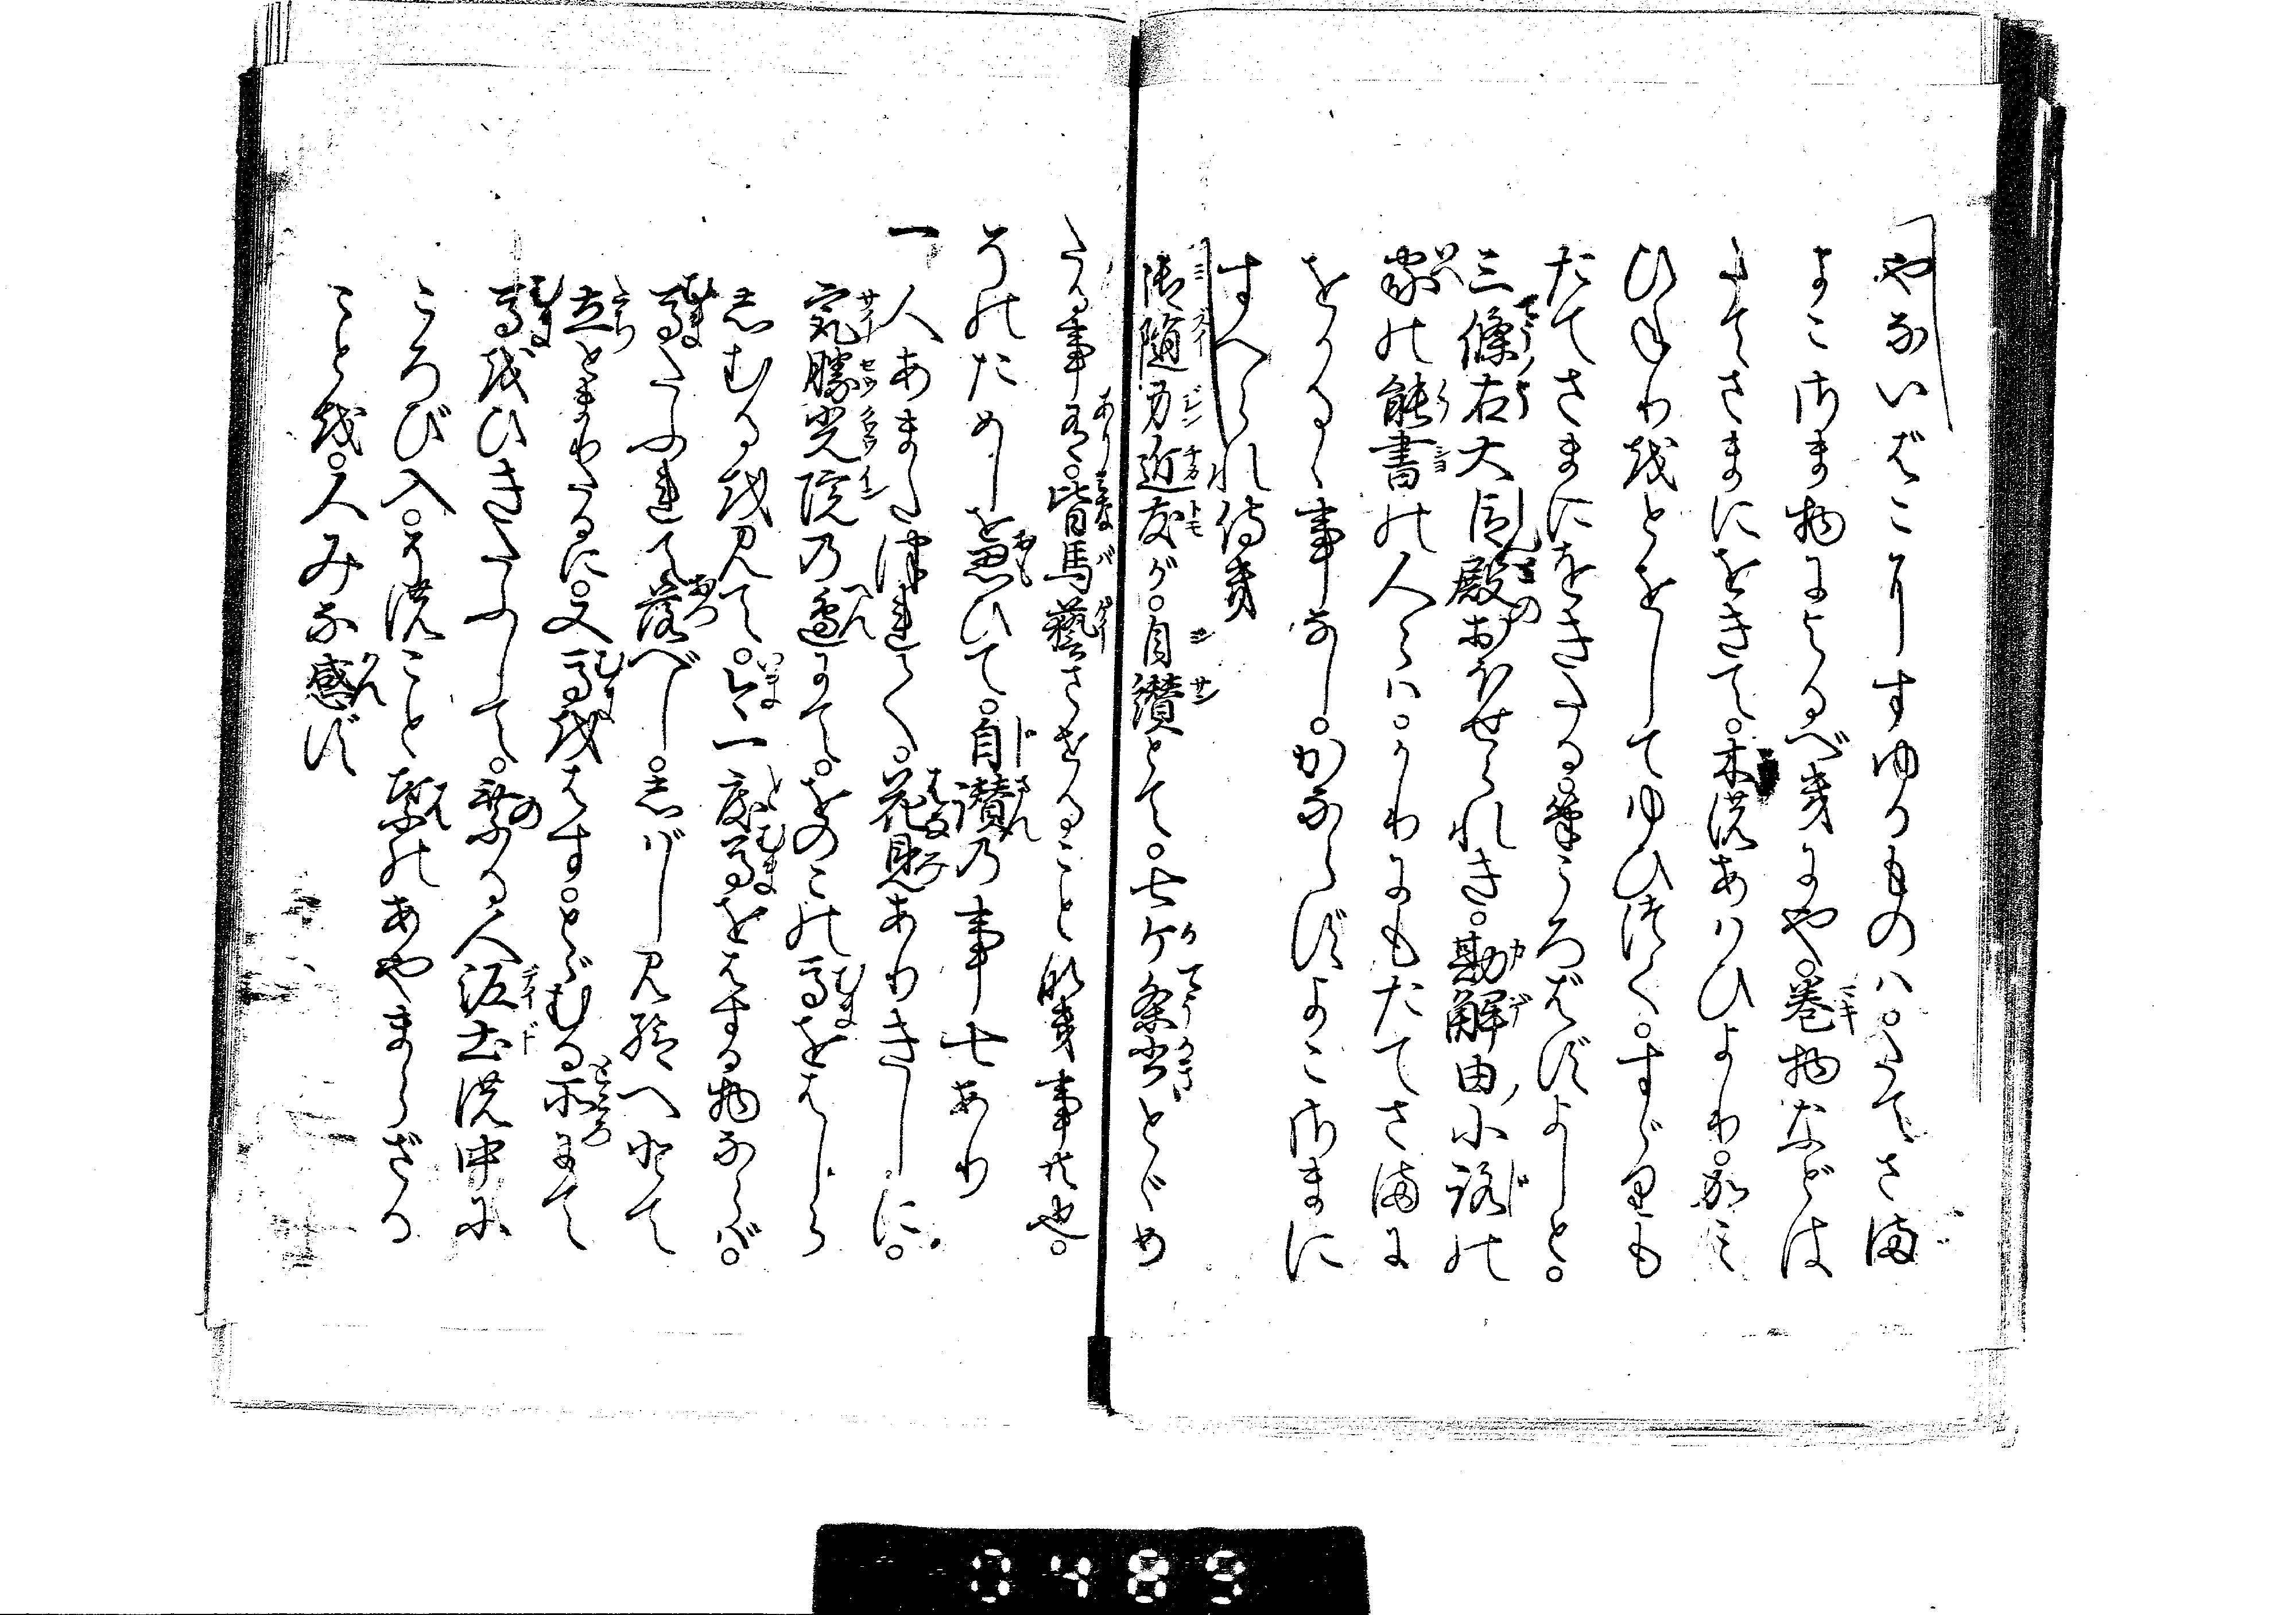 やないばこにすゆるものハ。たてさま
よこさま物によるべきにや。巻物などは
たてさまにをきて。木のあハひより。かミ
ひねりをとをしてゆひつく。すゞりも
たてさまにをきたる。筆ころばずよしと。
三條右大臣殿おほせられき。勘解由小路の
家の能書の人々ハ。かりにもたてさまに
をかるゝ事なし。かならずよこさまに
すへられ侍き
御随身近友が。自讃とて。七ケ条書とゞめ
たる事有。皆馬藝させることなき事共也。
そのためしを思ひて。自讃の事七あり
一人あまたつれて。花見ありきしに。
最勝光院の邊にて。をのこの馬をはしら
しむるを見て。今一度馬をはする物ならば。
馬たふれて落べし。しばし見給へとて
立とまりたるに。又馬をはす。とゞむる所にて
馬をひきたふして。乗る人泥土の中に
ころび入。そのことばのあやまらざる
ことを。人みな感ず
0489